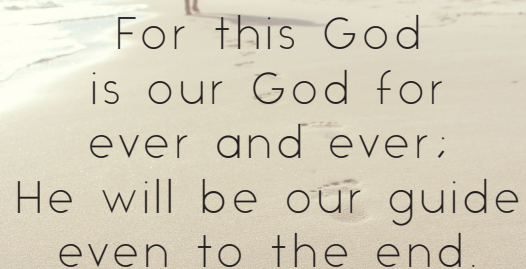 For this God
is our God for
ever and ever;
He will be our guide
even to the end.